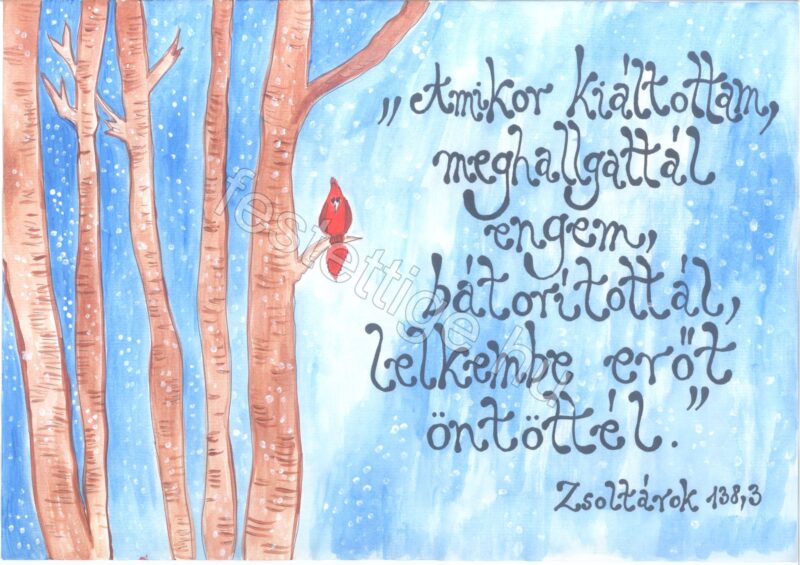 „Amikor kiáltottam,
meghallgattál
engem,
bátorítottál,
lelkembe erőt
öntöttél.”
Zsoltárok 138,3
festettige.hu